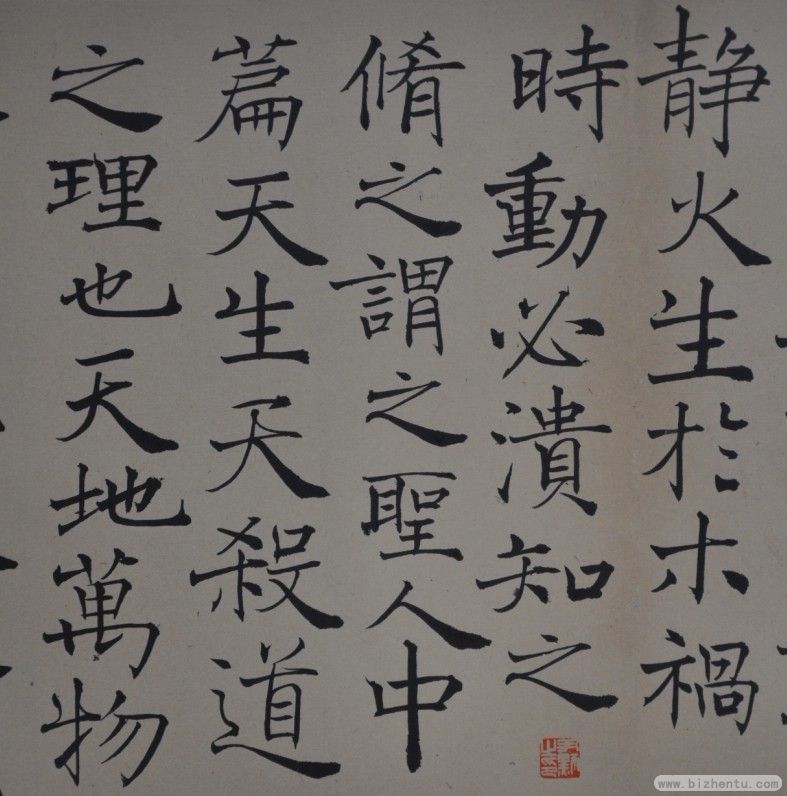 静火生於木禍
時動必潰知之
脩之謂之聖人中
篇天生天殺道
之理也天地萬物
www.bizhentu.com